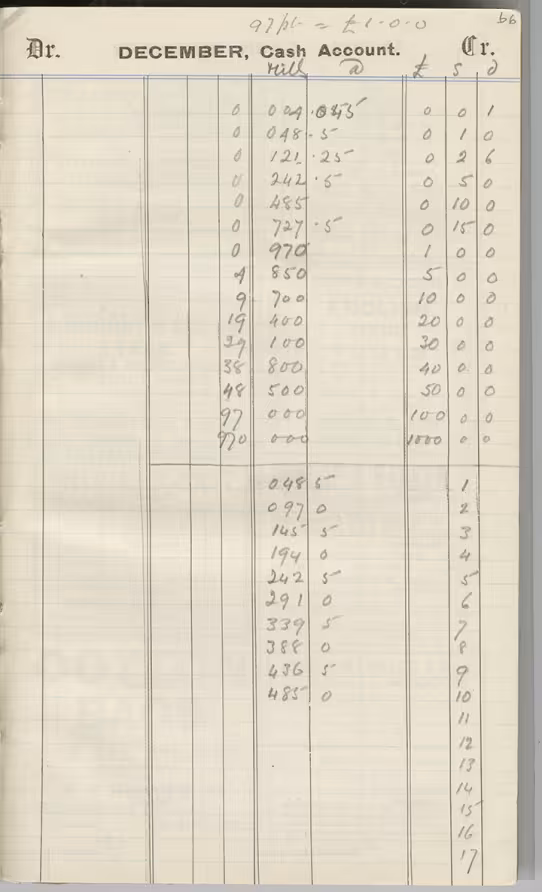 66
97/pt = £1-0-0
Dr. DECEMBER, Cash Account. Cr.
Mill @ £ s d
0 004 .045 0 0 1
0 048 .5 0 1 0
0 121 .25 0 2 6
0 242 .5 0 5 0
0 485 0 10 0
0 727 .5 0 15 0
0 970 1 0 0
4 850 5 0 0
9 700 10 0 0
19 400 20 0 0
29 100 30 0 0
38 800 40 0 0
48 500 50 0 0
97 000 100 0 0
970 000 1000 0 0
048 5 1
097 0 2
145 5 3
194 0 4
242 5 5
291 0 6
339 5 7
388 0 8
436 5 9
485 0 10
11
12
13
14
15
16
17